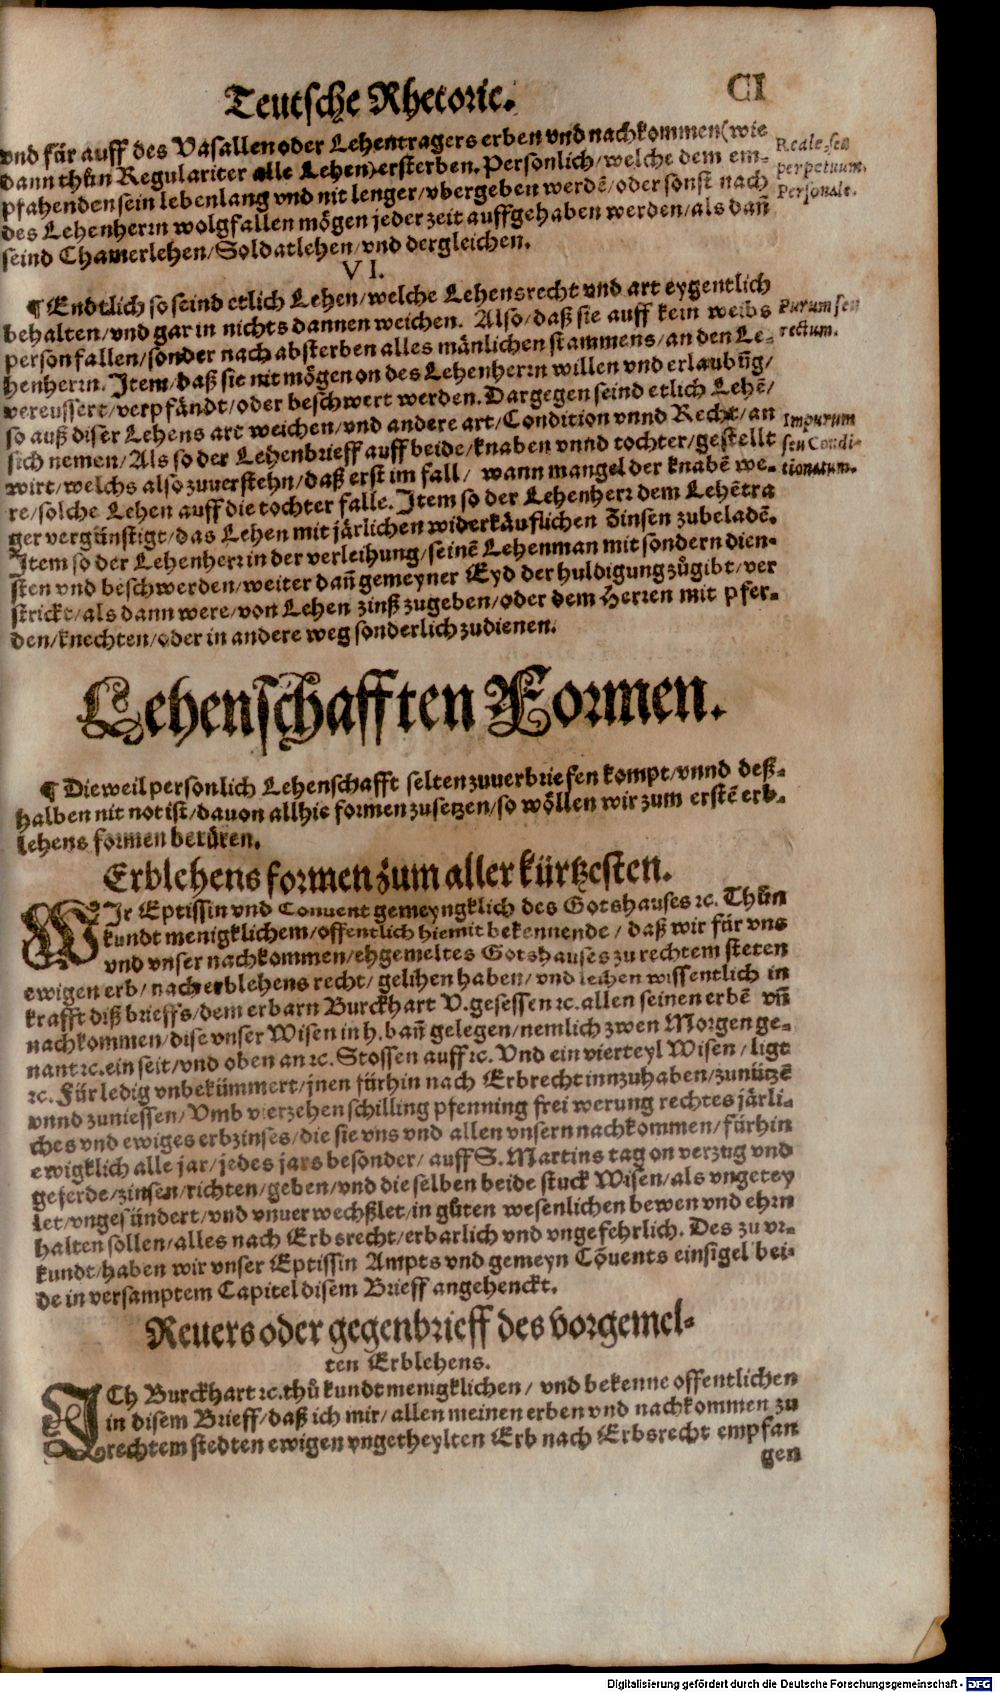 Teutsche Rhetoric.
CI
vnd für auff des Vasallen oder Lehentragers erben vnd nachkommen (wie
dann thůn Regulariter alle Lehen) ersterben. Personlich/welche dem em-
pfahenden sein lebenlang vnd nit lenger/vbergeben werdē/oder sonst nach
des Lehenherrn wolgfallen mögen jeder zeit auffgehaben werden/als dañ
seind Chamerlehen/Soldatlehen/vnd dergleichen.
Reale, seu
perpetuum.
Personale.
VI.
¶ Endtlich so seind etlich Lehen/welche Lehensrecht vnd art eygentlich
behalten/vnd gar in nichts dannen weichen. Also/daß sie auff kein weibs
person fallen/sonder nach absterben alles mänlichen stammens/an den Le-
henherrn. Item/daß sie nit mögen on des Lehenherrn willen vnd erlaubũg/
vereussert/verpfändt/oder beschwert werden. Dargegen seind etlich Lehē/
so auß diser Lehens art weichen/vnd andere art/Condition vnnd Recht/an
sich nemen/Als so der Lehenbrieff auff beide/knaben vnnd tochter/gestellt
wirt/welchs also zuuerstehn/daß erst im fall/ wann mangel der knabē we-
re/solche Lehen auff die tochter falle. Item so der Lehenherr dem Lehētra
ger vergünstigt/das Lehen mit järlichen widerkäuflichen Zinsen zubeladē.
Item so der Lehenherr in der verleihung/seinē Lehenman mit sondern dien-
sten vnd beschwerden/weiter dañ gemeyner Eyd der huldigung zůgibt/ver
strickt/als dann were/von Lehen zinß zugeben/oder dem Herren mit pfer-
den/knechten/oder in andere weg sonderlich zudienen.
Purum seu
rectum.
Impurum
seu Condi-
tionatum.
Lehenschafften Formen.
¶ Dieweil personlich Lehenschafft selten zuuerbriefen kompt/vnnd deß-
halben nit not ist/dauon allhie formen zusetzen/so wöllen wir zum erstē erb-
lehens formen berüren.
Erblehens formen zum aller kürtzesten.
WIr Eptissin vnd Conuent gemeyngklich des Gotshauses ꝛc. Thůn
kundt menigklichem/offentlich hiemit bekennende/ daß wir für vns
vnd vnser nachkommen/ehgemeltes Gotshauses zu rechtem steten
ewigen erb/nach erblehens recht/gelihen haben/vnd leihen wissentlich in
krafft diß brieffs/dem erbarn Burckhart V. gesessen ꝛc. allen seinen erbē vñ
nachkommen/dise vnser Wisen in h. bañ gelegen/nemlich zwen Morgen ge-
nant ꝛc. ein seit/vnd oben an ꝛc. Stossen auff ꝛc. Vnd ein vierteyl Wisen/ligt
ꝛc. Für ledig vnbekümmert/jnen fürhin nach Erbrecht innzuhaben/zunützē
vnnd zuniessen/Vmb vierzehen schilling pfenning frei werung rechtes järli-
ches vnd ewiges erbzinses/die sie vns vnd allen vnsern nachkommen/fürhin
ewigklich alle jar/jedes jars besonder/auff S. Martins tag on verzug vnd
geferde/zinsen/richten/geben/vnd die selben beide stuck Wisen/als vngetey
let/vngesündert/vnd vnuerwechßlet/in gůten wesenlichen bewen vnd ehrn
halten sollen/alles nach Erbsrecht/erbarlich vnd vngefehrlich. Des zu vr-
kundt/haben wir vnser Eptissin Ampts vnd gemeyn Cōuents einsigel bei-
de in versamptem Capitel disem Brieff angehenckt.
Reuers oder gegenbrieff des vorgemel-
ten Erblehens.
ICh Burckhart ꝛc. thů kundt menigklichen/ vnd bekenne offentlichen
in disem Brieff/daß ich mir/allen meinen erben vnd nachkommen zu
rechtem stedten ewigen vngetheylten Erb nach Erbsrecht empfan
gen
Digitalisierung gefördert durch die Deutsche Forschungsgemeinschaft - DFG